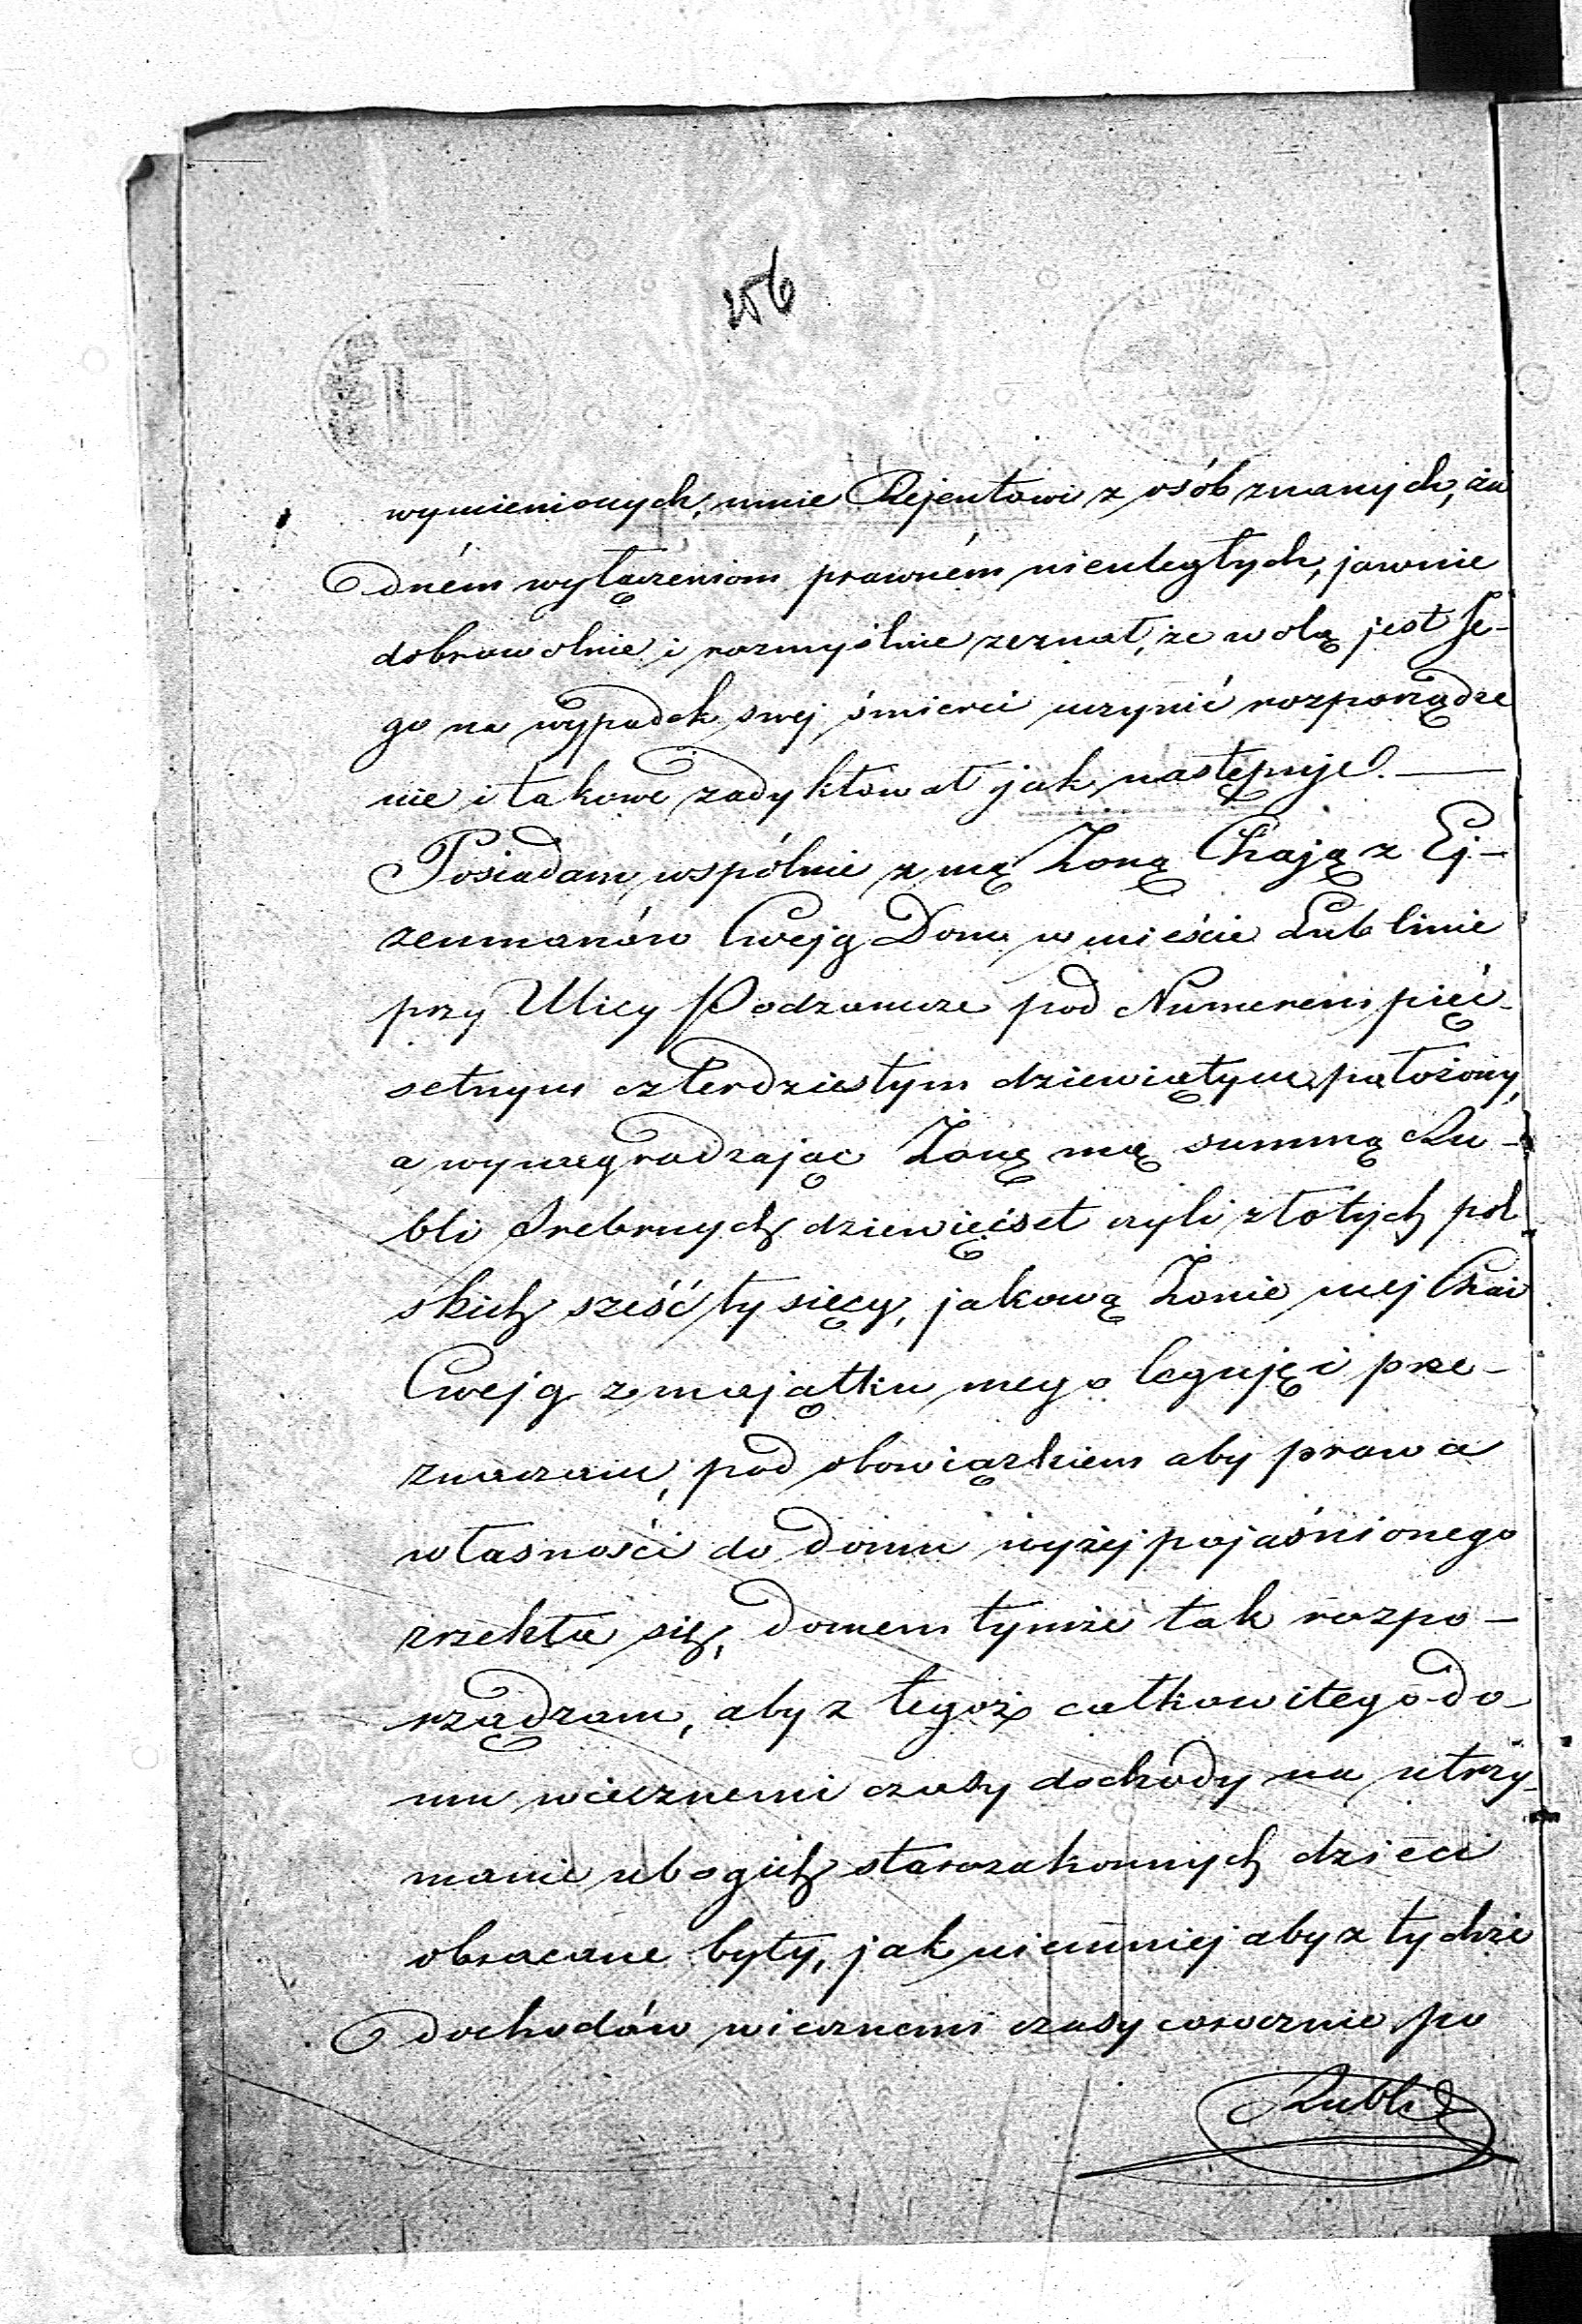 256
wymienionych, mnie Rejentowi z osób znanych, ża
dném wyłączeniom prawném nieuległych, jawnie
dobrowolnie i rozmyślnie zeznał, że wolą jest Je-
go na wypadek swej śmierci uczynić rozporządze
nie i takowe zadyktował jak następuje. —
Posiadam wspólnie z mą Żoną Chają z Ej-
zenmanów Cwejg Dom w mieście Lublinie
przy Ulicy Podzamcze pod Numerem pięć-
setnym czterdziestym dziewiątym położony,
a wynagradzając Żonę mą summą Ru-
bli Srebrnych dziewięćset czyli złotych pol
skich sześć tysięcy, jakową Żonie mej Chai
Cwejg z majątku mego leguję i prze-
znaczam, pod obowiązkiem aby prawa
własności do domu wyżej pojaśnionego
zrzekła się, domem tymże tak rozpo-
rządzam, aby z tegoż całkowitego do-
mu wiecznemi czasy dochody na utrzy-
manie ubogich starozakonnych dzieci
obracane były, jak niemniej aby z tychże
dochodów wiecznemi czasy corocznie po
Rubli